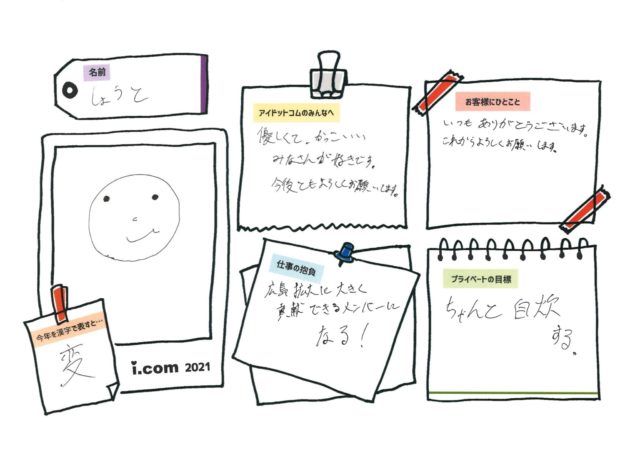 名前
しょうと
アイドットコムのみんなへ
優しくて、かっこいい
みなさんが好きです。
今後ともよろしくお願いします。
お客様にひとこと
いつもありがとうございます。
これからよろしくお願いします。
仕事の抱負
広島拡大に大きく
貢献できるメンバーに
なる！
プライベートの目標
ちゃんと自炊
する。
今年を漢字で表すと…
変
i.com 2021